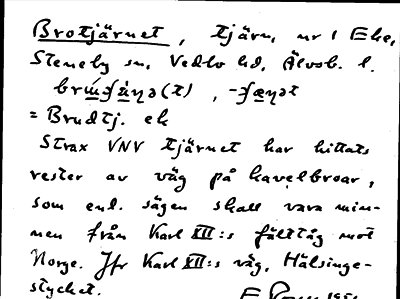 Brotjärnet, tjärn, nr 1 Eke,
Steneby sn, Vedbo hd, Älvsb. l.
= Brudtj. ek
Strax VNV tjärnet har hittats
rester av väg på kavelbroar,
som enl. sägen skall vara min-
nen från Karl XII:s fälttåg mot
Norge. Jfr Karl XII:s väg, Hälsinge-
stycket.